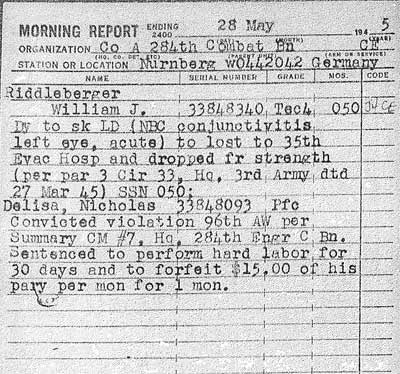 MORNING REPORT ENDING 2400 28 May 1945
(DAY) (MONTH) (YEAR)
ORGANIZATION Co A 284th Combat Bn CE
(HQ, CO, DET, ETC) (ARM OR SERVICE)
STATION OR LOCATION Nurnberg wo442042 Germany
NAME SERIAL NUMBER GRADE MOS. CODE
Riddleberger
William J. 33848340 Tec4 050
Dy to sk LD (NBC conjunctivitis
left eye, acute) to lost to 35th
Evac Hosp and dropped fr strength
(per par 3 Cir 33, Hq, 3rd Army dtd
27 Mar 45) SSN 050;
Delisa, Nicholas 33848093 Pfc
Convicted violation 96th AW per
Summary CM #7, Hq, 284th Engr C Bn.
Sentenced to perform hard labor for
30 days and to forfeit $15.00 of his
pary per mon for 1 mon.